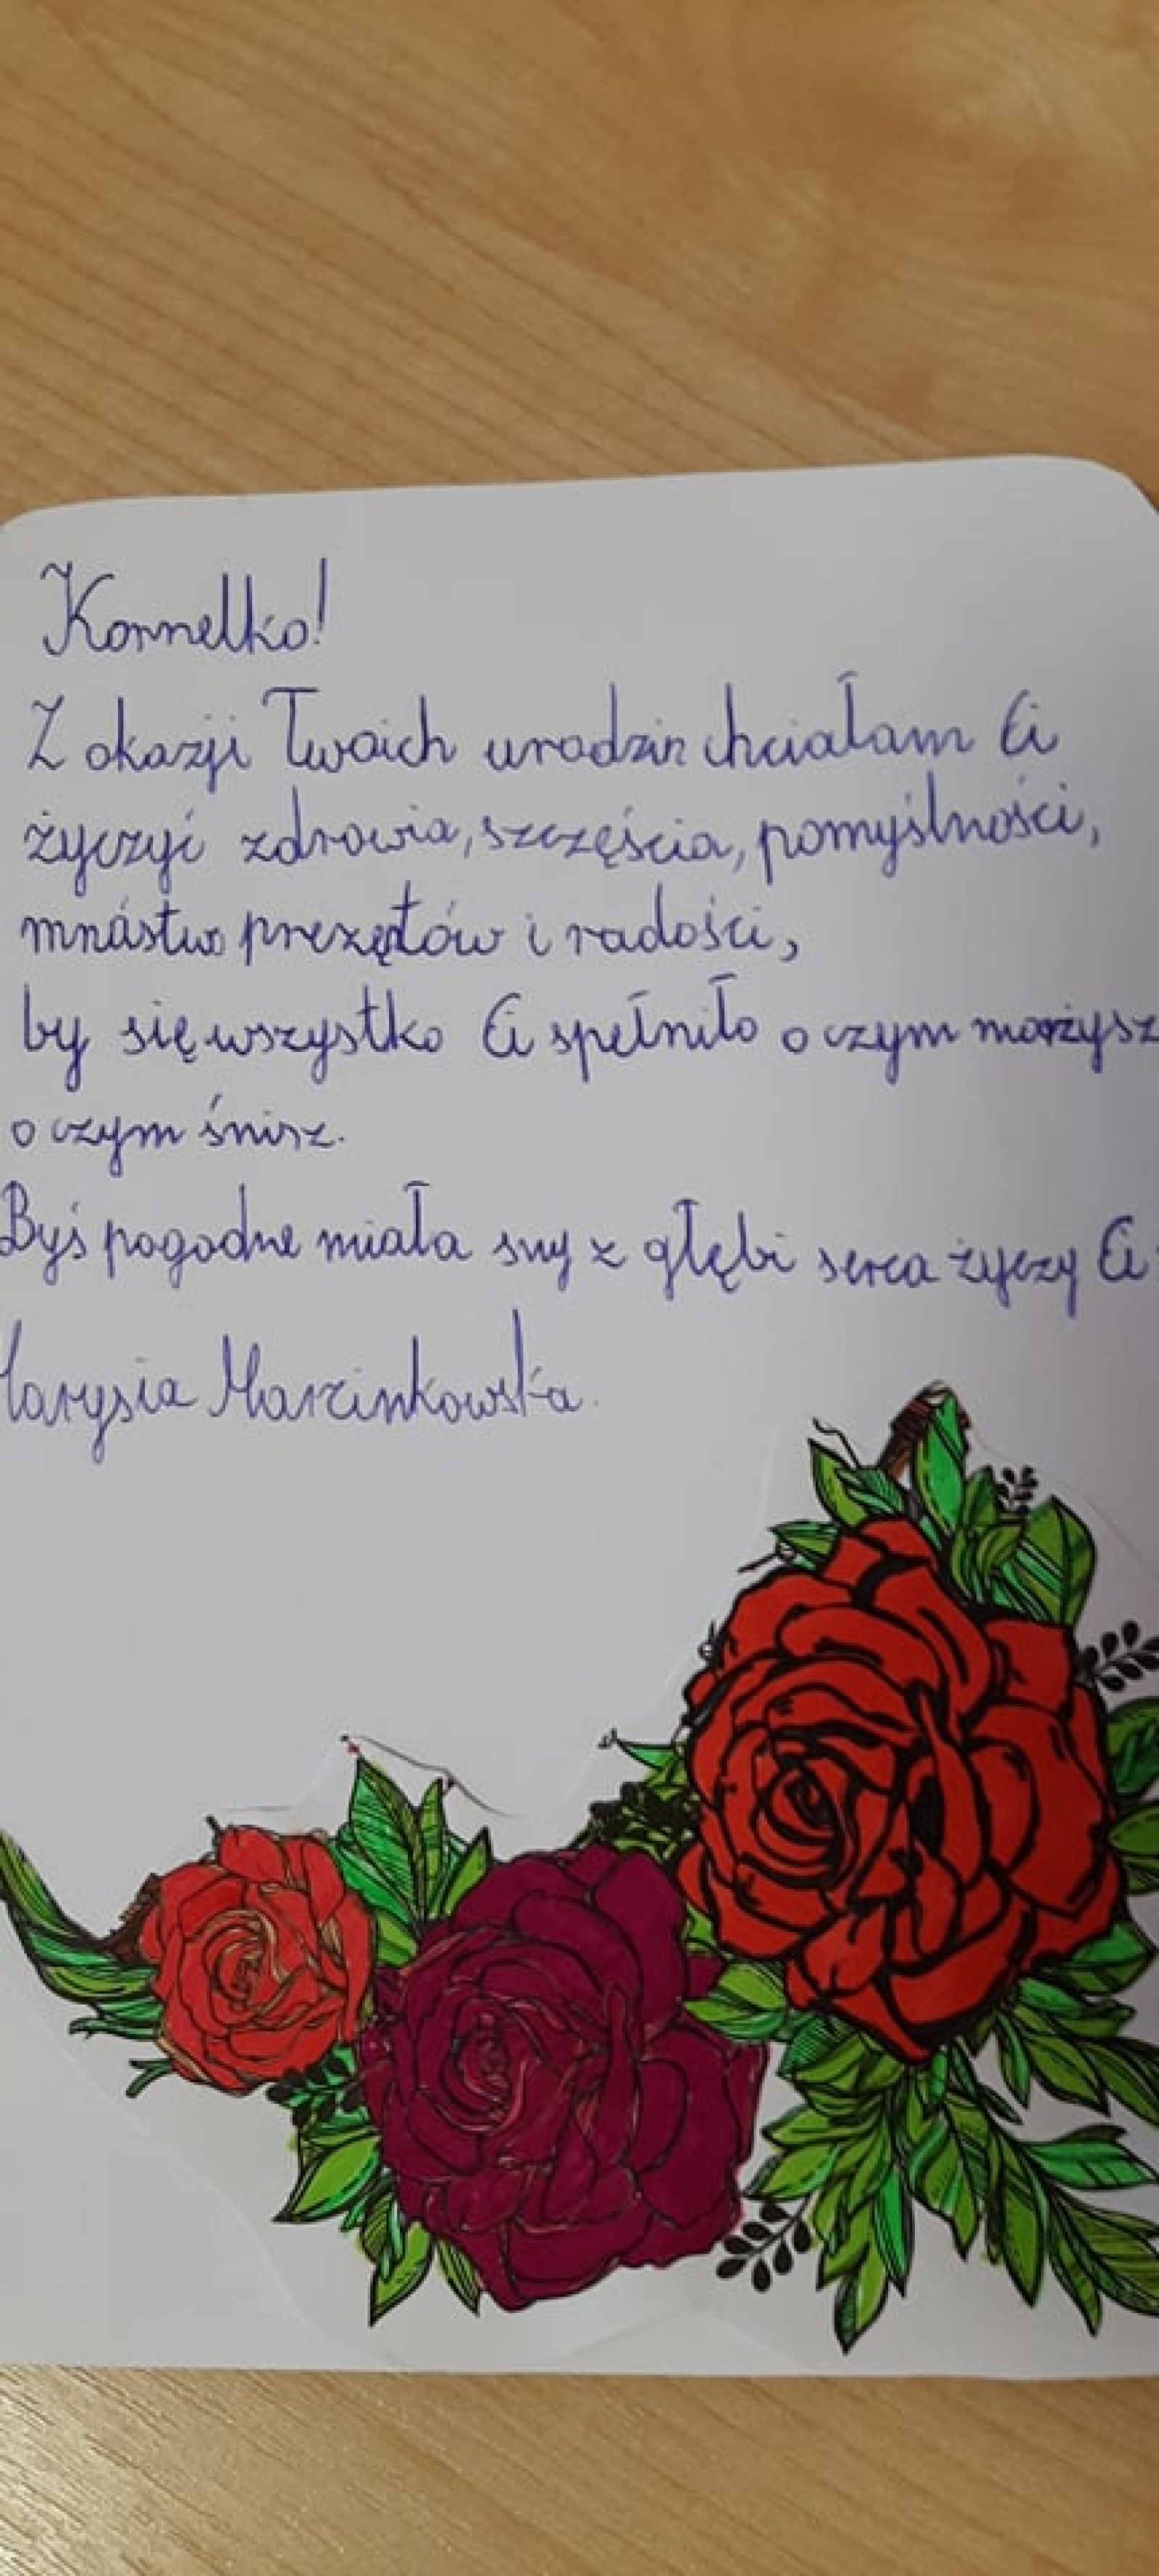 Kornelko!
Z okazji Twoich urodzin chciałam Ci
życzyć zdrowia, szczęścia, pomyślności,
mnóstwo prezętów i radości,
by się wszystko Ci spełniło o czym marżysz
o czym śnisz.
Byś pogodne miała sny z głębi serca życzy Ci:
Marysia Marcinkowska.